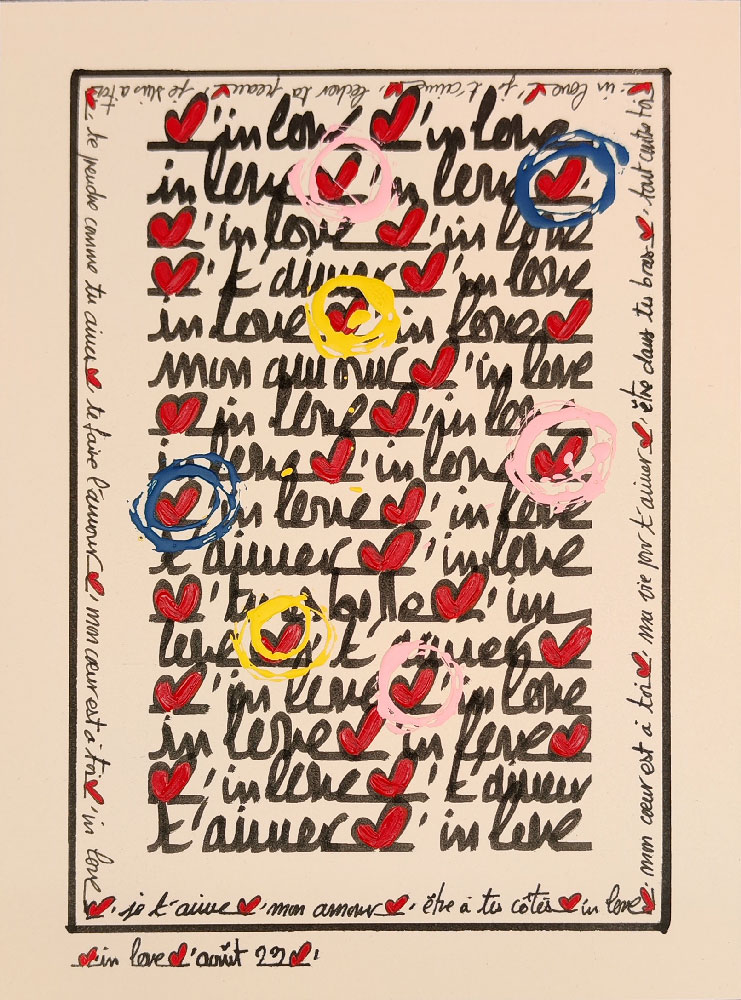 in love ❤' je t'aime ❤' lécher ta peau ❤' je suis à toi
❤' in love ❤' in love
in love ❤' in love ❤'
❤' in love ❤' in love
❤' t'aimer ❤' in love
in love ❤' in love ❤
mon amour ❤' in love
❤' in love ❤' in love
in love ❤' in love ❤
❤' in love ❤' in love
t'aimer ❤' in love
❤' tu es belle ❤' in
love ❤' t'aimer ❤
❤' in love ❤' in love
in love ❤' in love ❤
❤' in love ❤' t'aimer
t'aimer ❤' in love
❤' te prendre comme tu aimes ❤' te faire l'amour ❤' mon cœur est à toi ❤' in love
❤' je t'aime ❤' mon amour ❤' être à tes côtés ❤' in love
❤' mon cœur est à toi ❤' ma vie pour t'aimer ❤' être dans tes bras ❤' tout contre toi
❤' in love ❤' août 22 ❤'